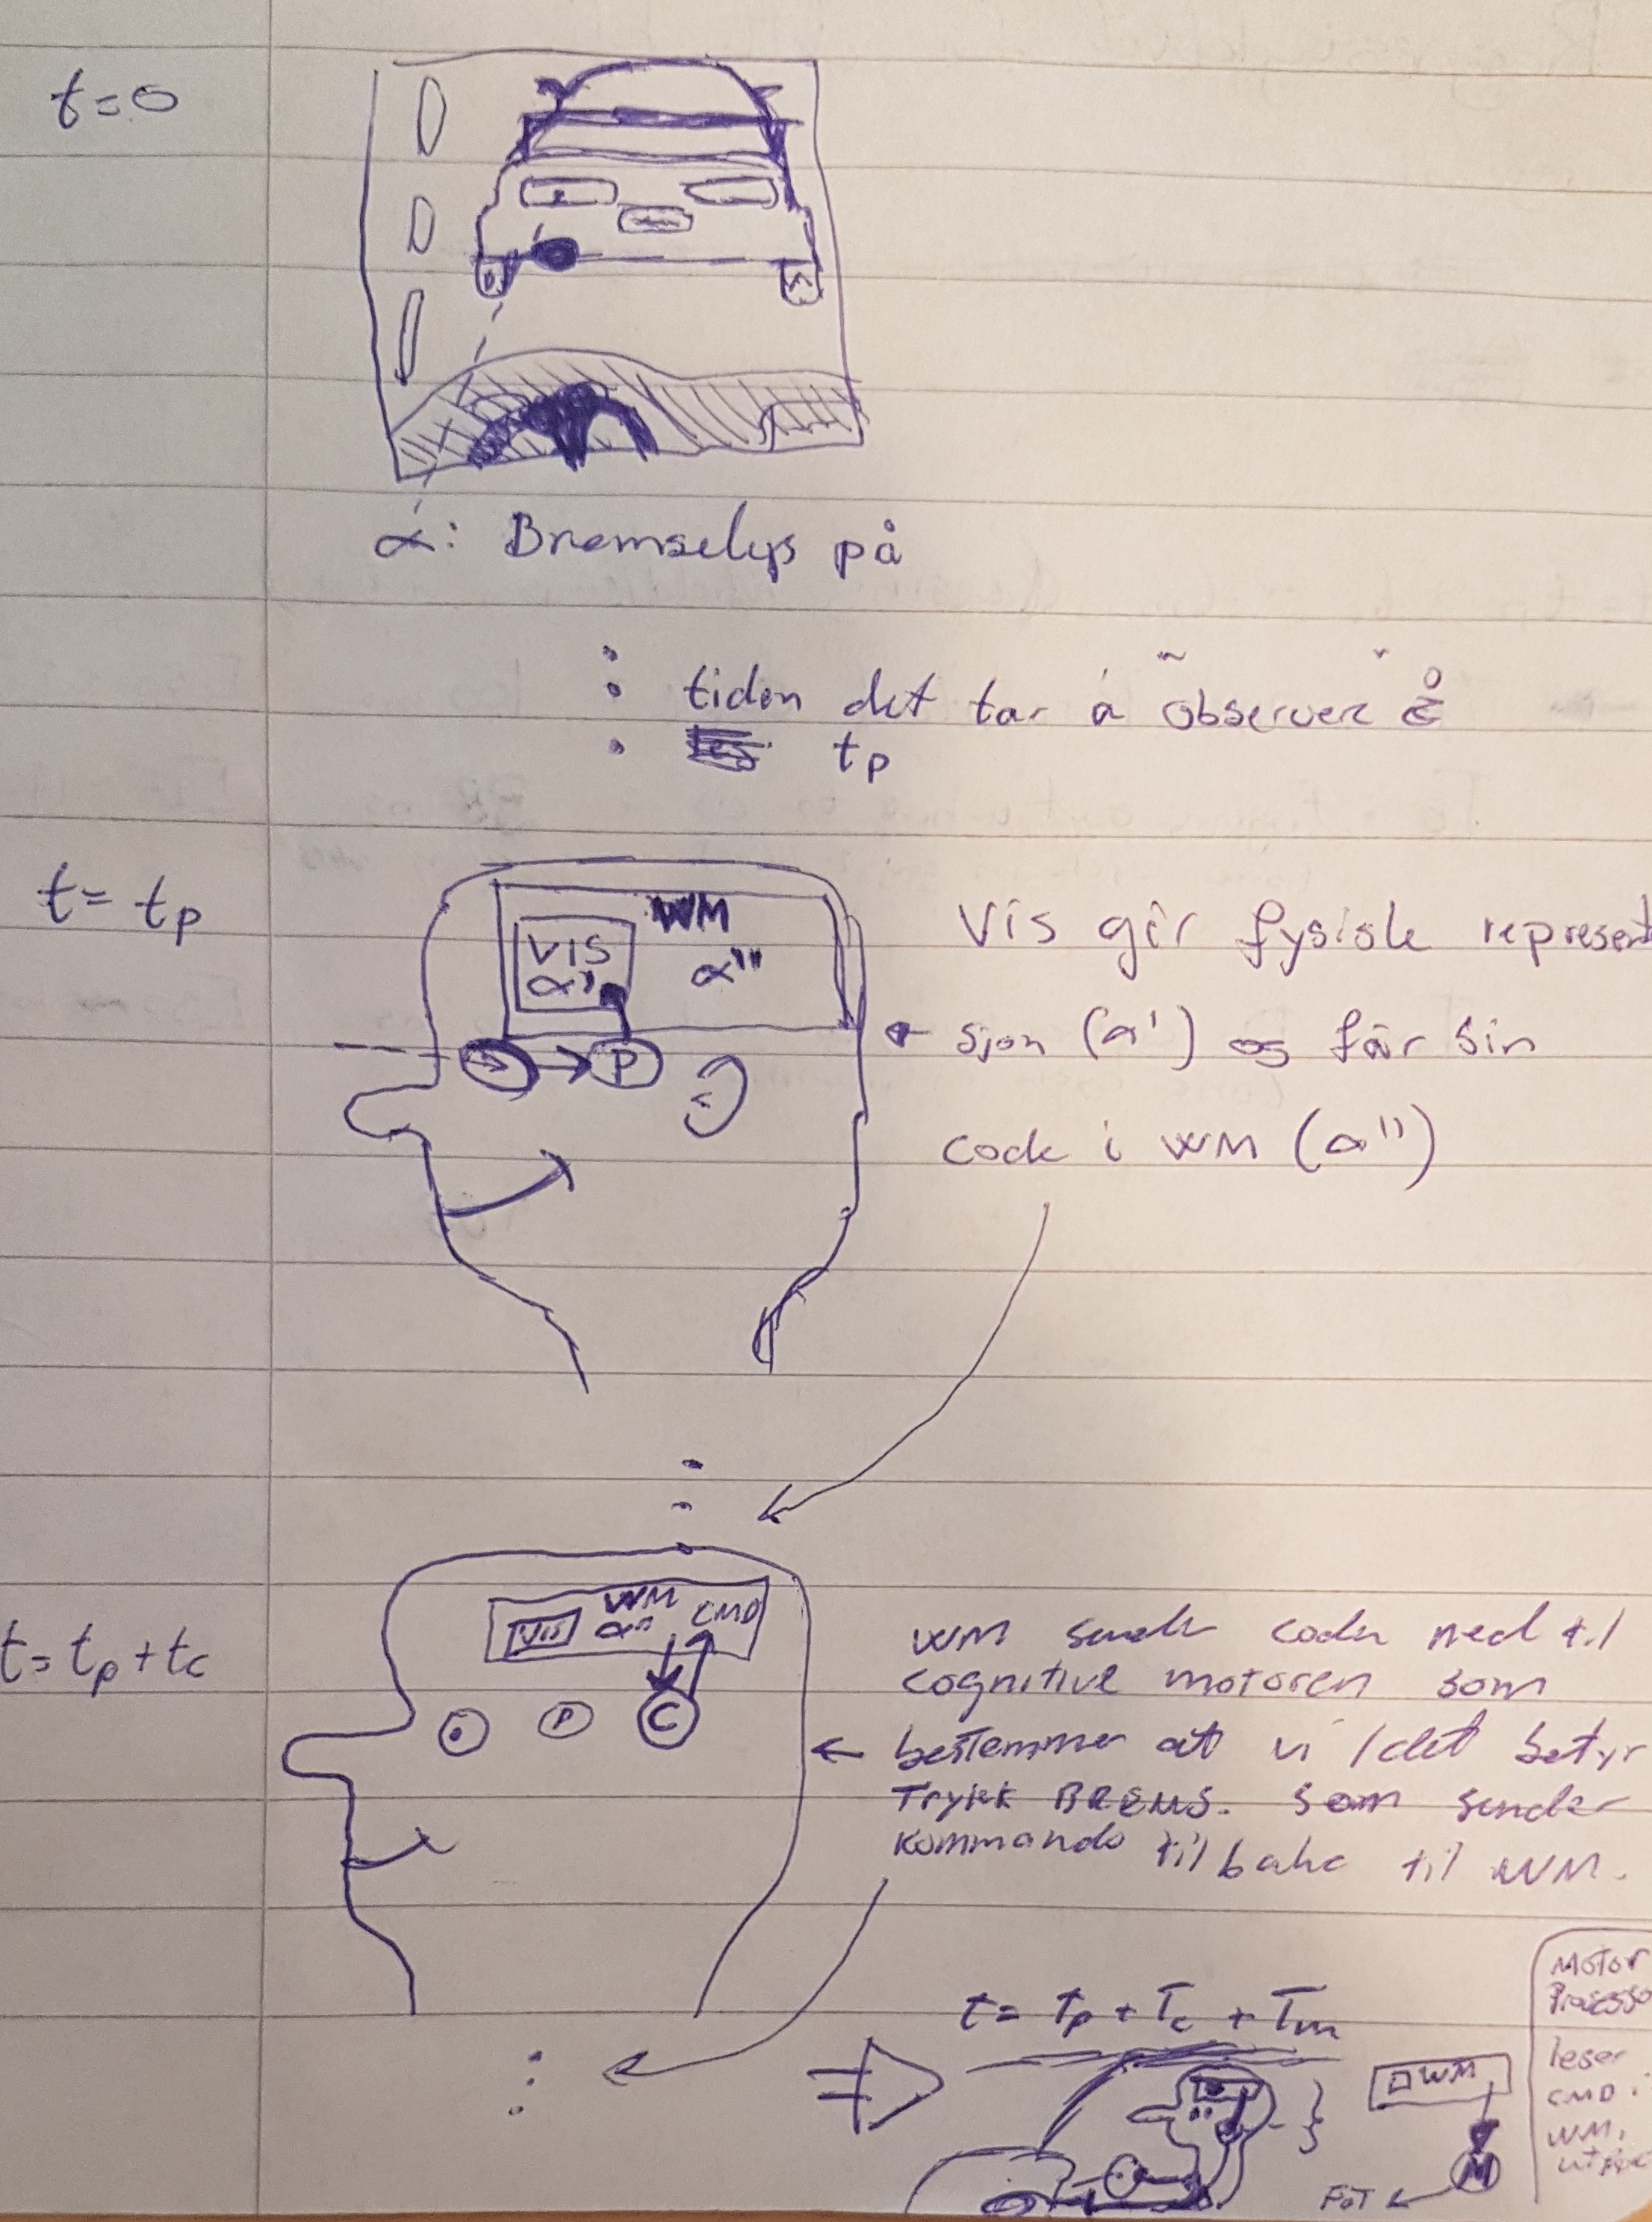 t=0
α: Bremselys på
tiden det tar å observere
tp
t= tp
WM
VIS
α'
α"
P
Vis gir fysisk represent
sjon (α') og får sin
code i WM (α")
t= tp + tc
WM
VIS α" CMD
P C
WM sender coden ned til
cognitive motoren som
bestemmer at vi / det betyr
Trykk BREMS. Som sender
kommando tilbake til WM.
t= Tp + Tc + Tm
WM
M
FOT
Motor
Prosesso
leser
CMD i
WM,